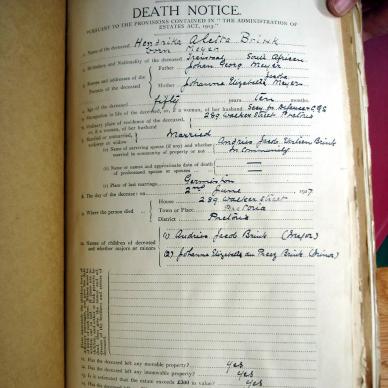 DEATH NOTICE.
PURSUANT TO THE PROVISIONS CONTAINED IN "THE ADMINISTRATION
OF ESTATES ACT, 1913."
1. Name of the deceased Hendrika Aletta Brink
born Meyer
2. Birthplace and Nationality of the deceased Transvaal South African
3. Names and addresses of the Father Johan Georg Meyer
Parents of the deceased Mother Johanna Elizabeth Meyer
4. Age of the deceased fifty years ten months
5. Occupation in life of the deceased, or, if a woman, of her husband Secy for Defence
6. Ordinary place of residence of the deceased, 289 Walker Street Pretoria
or, if a woman, of her husband
7. Married or unmarried, Married
widower or widow
(a) Name of surviving spouse (if any) and whether Andries Jacob Brink
married in community of property or not In Community
(b) Name or names and approximate date of death
of predeceased spouse or spouses
(c) Place of last marriage Germiston
8. The day of the decease on 2nd June 1927
9. Where the person died House 289 Walker Street
Town or Place Pretoria
District Pretoria
10. Names of children of deceased
and whether majors or minors
(1) Andries Jacob Brink (Major)
(2) Johanna Elizabeth du Preez Brink (Minor)
11. Has the deceased left any movable property? Yes
12. Has the deceased left any immovable property? Yes
13. Is it estimated that the estate exceeds £300 in value? Yes